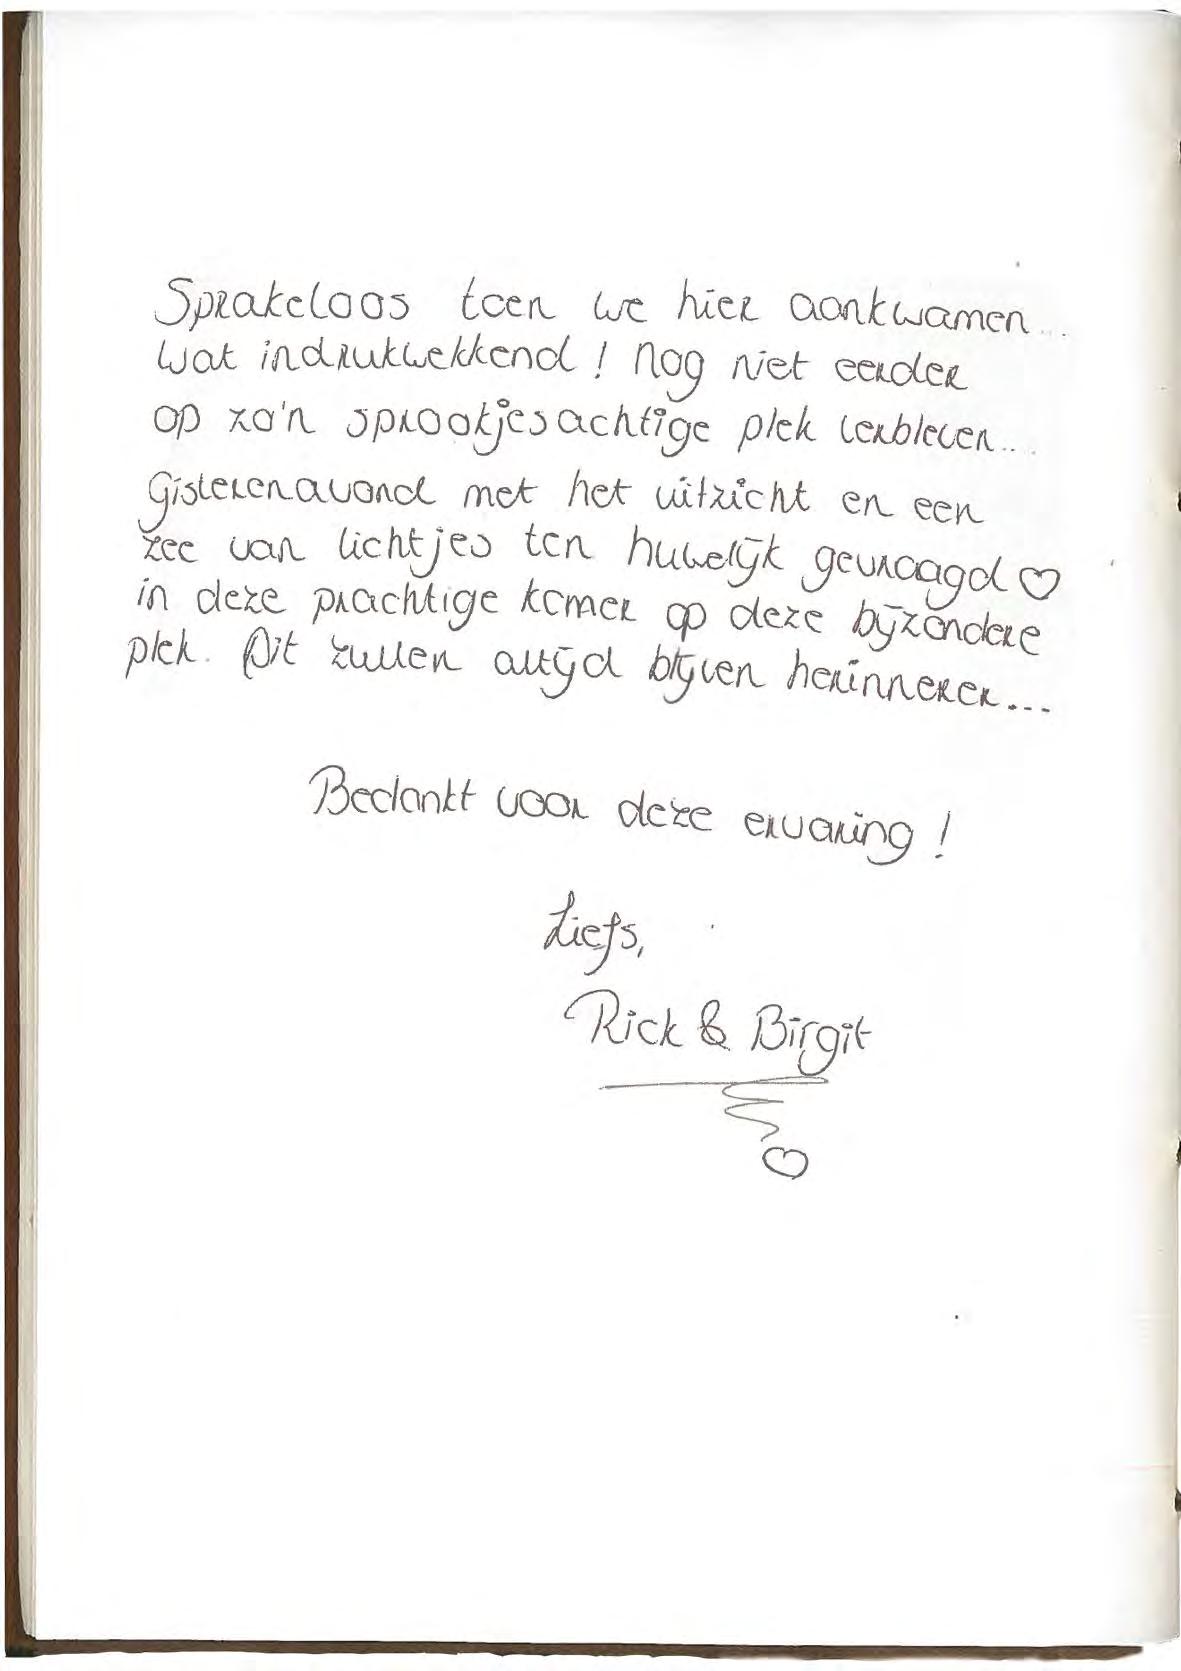 Sprakeloos toen we hier aankwamen...
Wat indrukwekkend! Nog niet eerder
op zo'n sprookjesachtige plek verbleven....
Gisterenavond met het uitzicht en een
zee van lichtjes ten huwelijk gevraagd ♡
in deze prachtige kamer op deze bijzondere
plek. Dit zullen altijd blijven herinneren...
Bedankt voor deze ervaring!
Liefs,
Rick & Birgit
♡